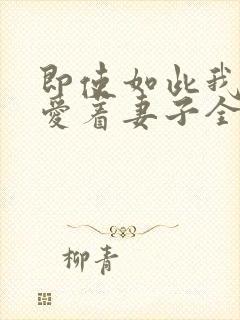 即使如此我
爱着妻子全
柳青